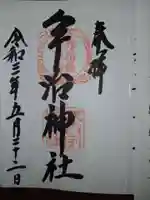 奉拝
宇治神社
令和三年五月二十二日